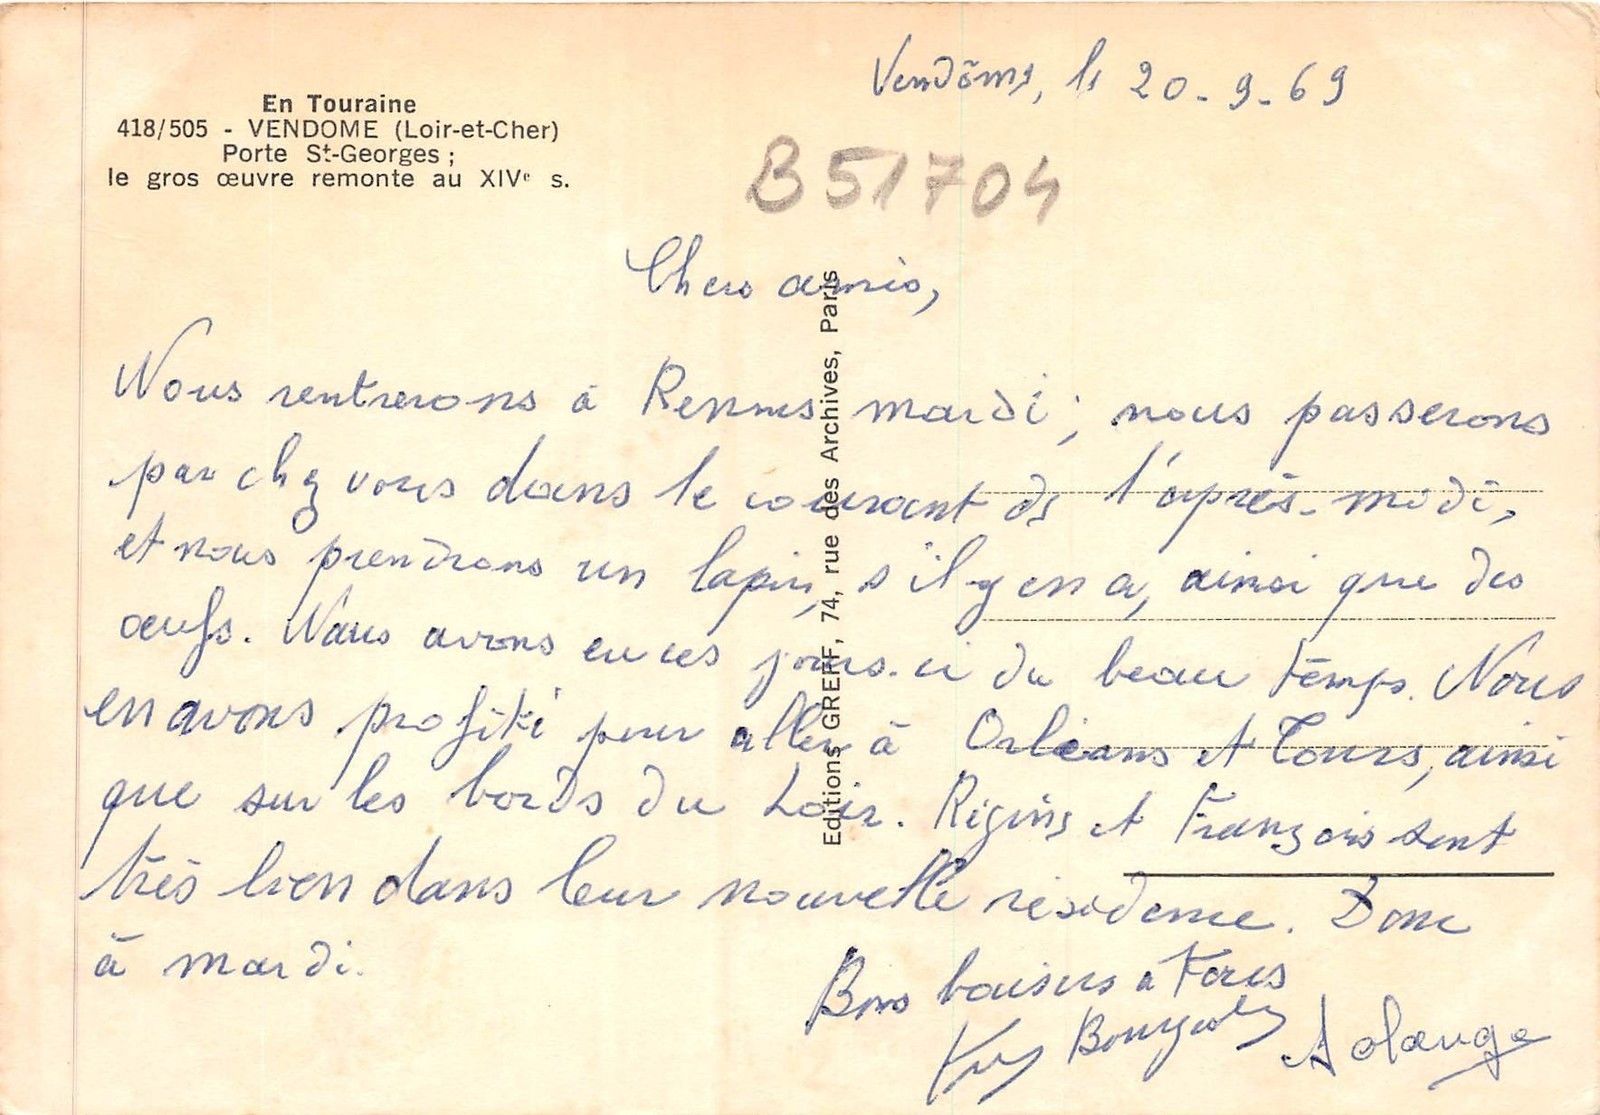 En Touraine
418/505 - VENDOME (Loir-et-Cher)
Porte St-Georges ;
le gros œuvre remonte au XIVe s.
Vendôme, le 20-9-69
B51704
Chers amis,
Nous rentrerons à Rennes mardi ; nous passerons
par chez vous dans le courant de l'après-midi,
et nous prendrons un lapin, s'il y en a, ainsi que des
œufs. Nous avons eu ces jours-ci du beau temps. Nous
en avons profité pour aller à Orléans et Tours, ainsi
que sur les bords du Loir. Régine et François sont
très bien dans leur nouvelle résidence. Donc
à mardi.
Bons baisers à Tous
Solange
Editions GREFF, 74, rue des Archives, Paris